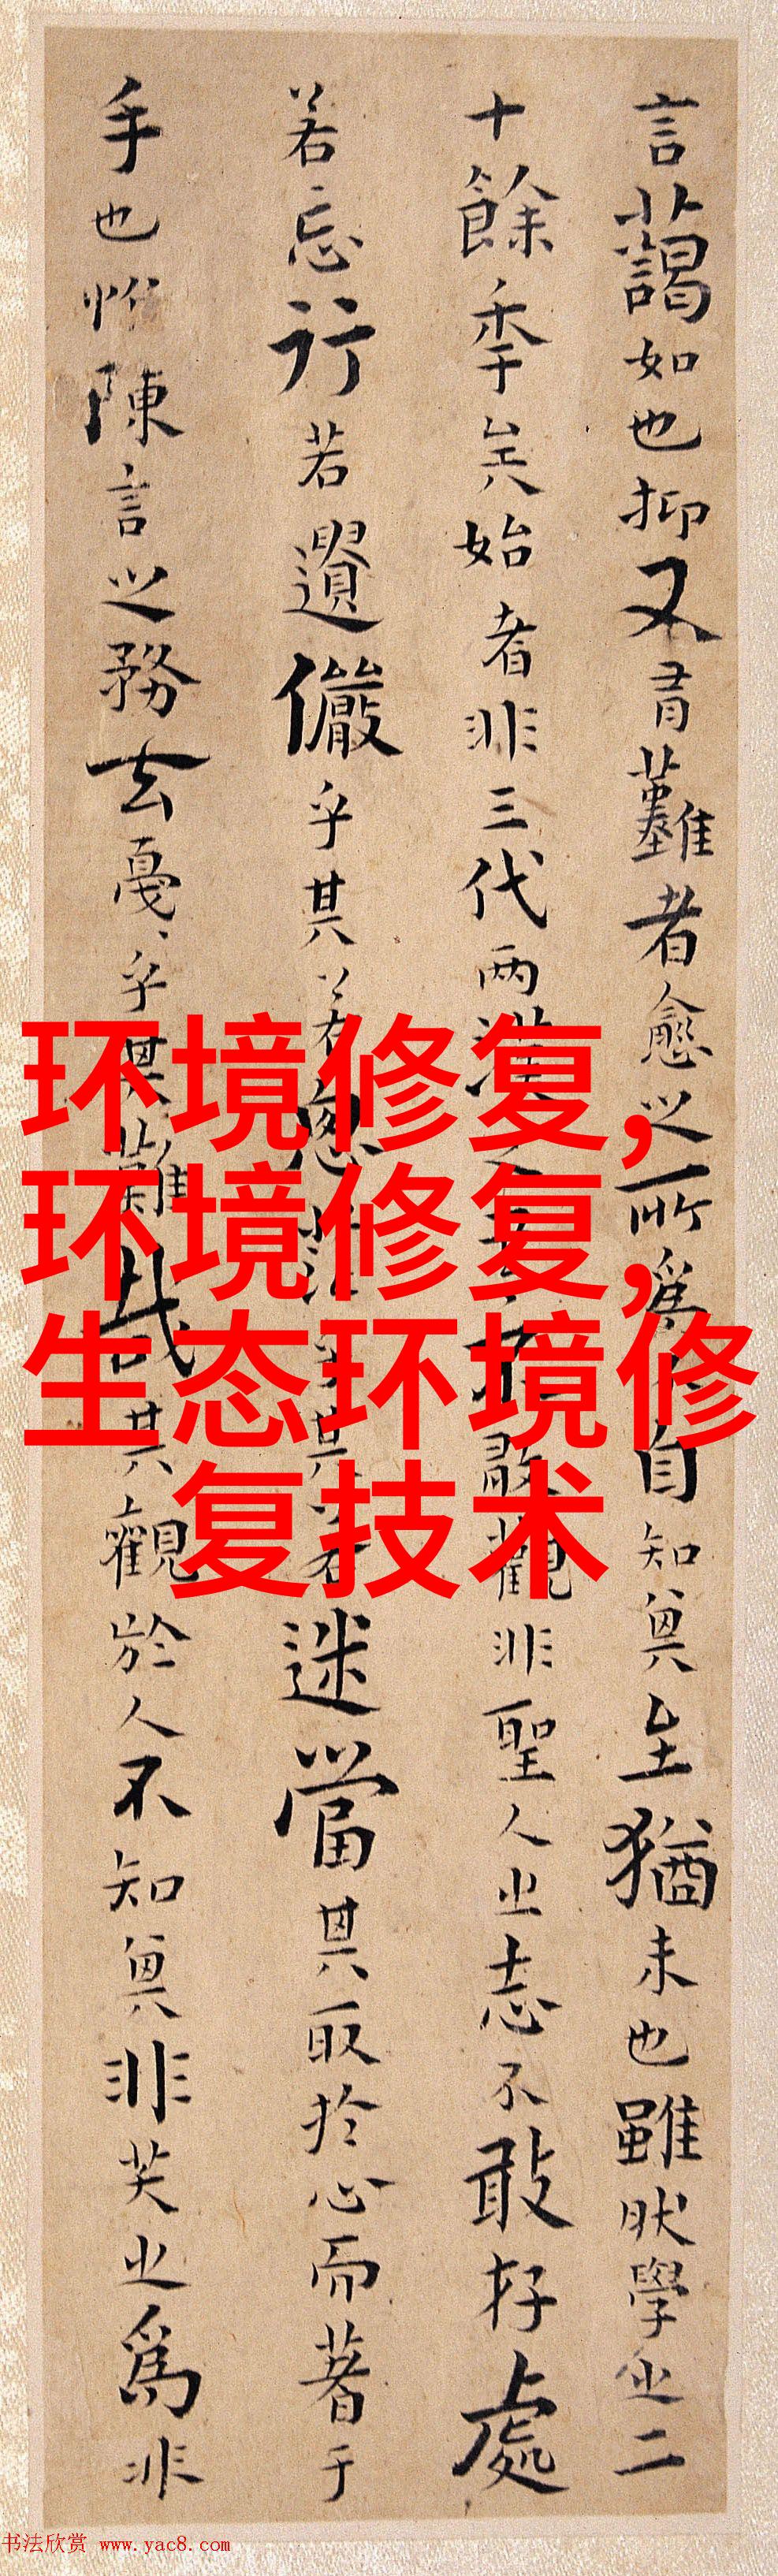 言藹如也抑又有難者愈之所爲不自知其至猶未也雖然學之二
十餘年矣始者非三代兩漢之書不敢觀非聖人之志不敢存處
若忘行若遺儼乎其若思茫乎其若迷當其取於心而著于
手也惟陳言之務去戛戛乎其難哉其觀於人不知其非笑之爲非
环境修复,
环境修复,
生态环境修
复技术
书法欣赏 www.yac8.com